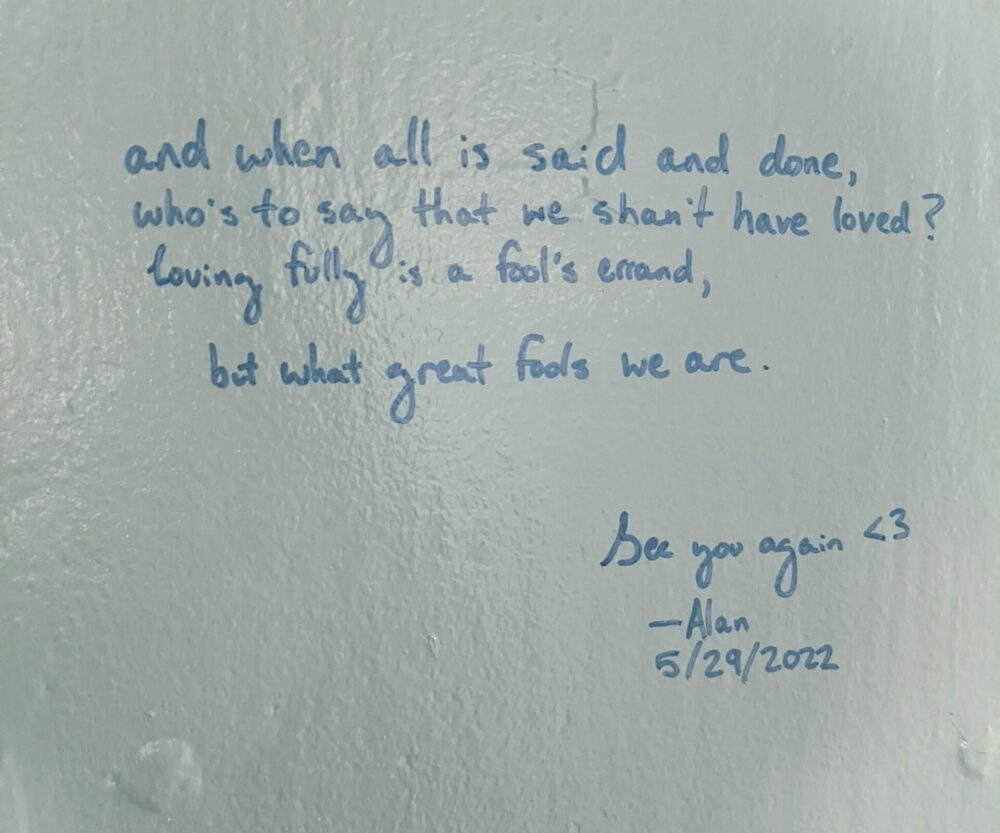 and when all is said and done,
who's to say that we shan't have loved?
loving fully is a fool's errand,
but what great fools we are.
See you again <3
—Alan
5/29/2022